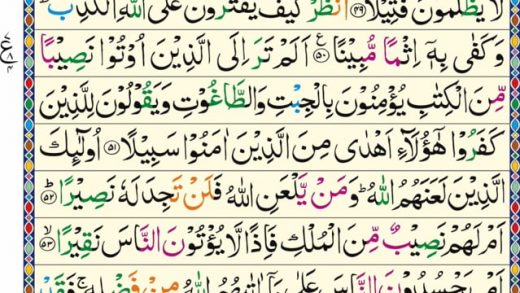 لَا يُظْلَمُوْنَ فَتِيْلًا ﴿۴۹﴾ اُنْظُرْ كَيْفَ يَفْتَرُوْنَ عَلَى اللّٰهِ الْكَذِبَ ؕ
وَكَفٰى بِهٖۤ اِثْمًا مُّبِيْنًا ﴿۵۰﴾ اَلَمْ تَرَ اِلَى الَّذِيْنَ اُوْتُوْا نَصِيْبًا
مِّنَ الْكِتٰبِ يُؤْمِنُوْنَ بِالْجِبْتِ وَالطَّاغُوْتِ وَيَقُوْلُوْنَ لِلَّذِيْنَ
كَفَرُوْا هٰۤؤُلَآءِ اَهْدٰى مِنَ الَّذِيْنَ اٰمَنُوْا سَبِيْلًا ﴿۵۱﴾ اُولٰٓئِكَ
الَّذِيْنَ لَعَنَهُمُ اللّٰهُ ؕ وَمَنْ يَّلْعَنِ اللّٰهُ فَلَنْ تَجِدَ لَهٗ نَصِيْرًا ﴿۵۲﴾ؕ
اَمْ لَهُمْ نَصِيْبٌ مِّنَ الْمُلْكِ فَاِذًا لَّا يُؤْتُوْنَ النَّاسَ نَقِيْرًا ﴿۵۳﴾ۙ
اَمْ يَحْسُدُوْنَ النَّاسَ عَلٰى مَاۤ اٰتٰىهُمُ اللّٰهُ مِنْ فَضْلِهٖ ۚ فَقَدْ